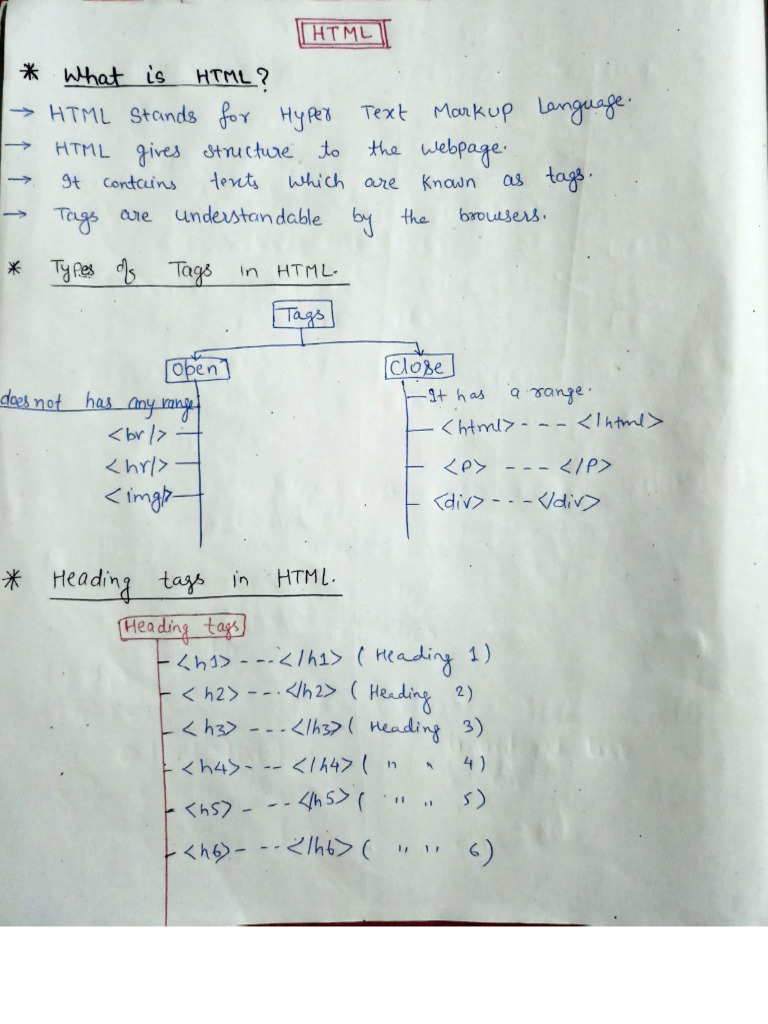 HTML
* What is HTML?
→ HTML stands for Hyper Text Markup Language.
→ HTML gives structure to the webpage.
→ It contains texts which are known as tags.
→ Tags are understandable by the browsers.
* Types of Tags in HTML.
Tags
Open
does not has any range
<br/>
<hr/>
<img/>
Close
It has a range.
<html> --- </html>
<P> --- </P>
<div> --- </div>
* Heading tags in HTML.
Heading tags
<h1> --- </h1> ( Heading 1)
<h2> --- </h2> ( Heading 2)
<h3> --- </h3> ( Heading 3)
<h4> --- </h4> ( " " 4)
<h5> --- </h5> ( " " 5)
<h6> --- </h6> ( " " 6)